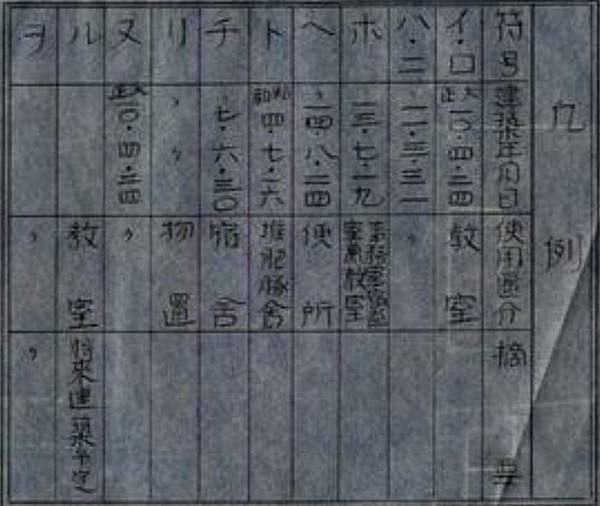 凡例
符号 建築年月日 使用區分 摘要
イ・ロ 大正一〇・四・二四 教室
ハ・ニ 〃一一・三・三一 〃
ホ 一三・七・一九 室兼教室
ヘ 〃一四・八・二四 便所
ト 昭和四・七・二六 堆肥豚舎
チ 〃七・六・三〇 宿舎
リ 〃 〃 物置
ヌ 大正一〇・四・二四 〃
ル 教室 将來建築予定
ヲ 〃 〃